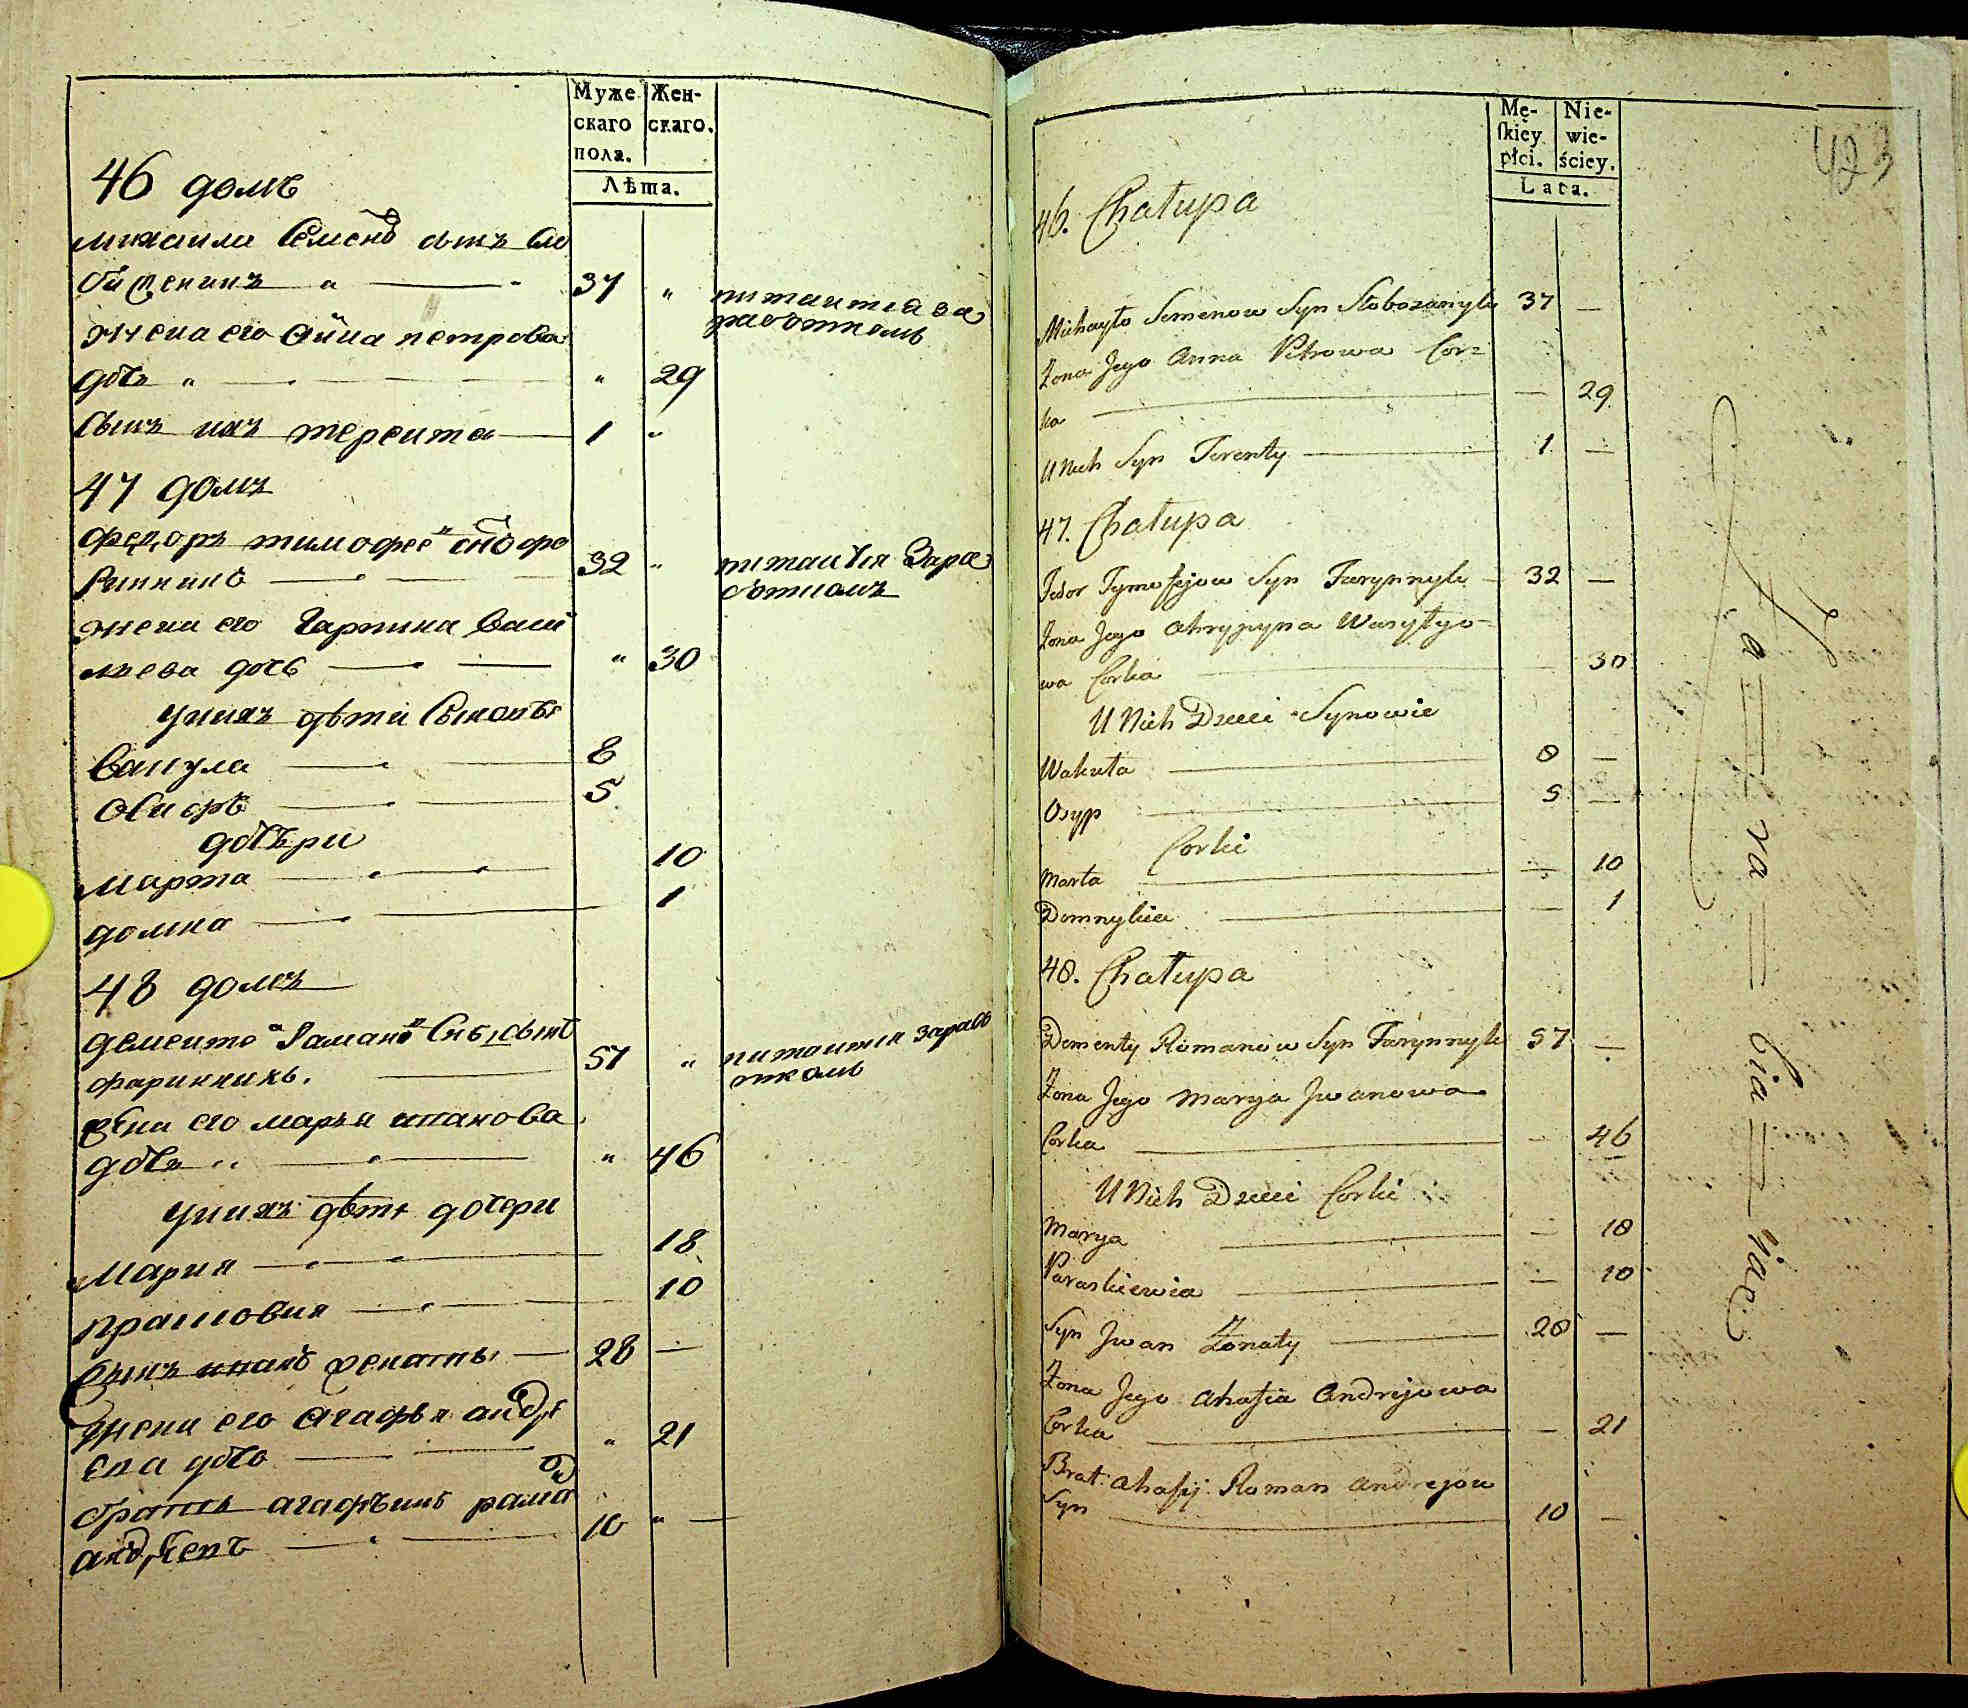 Муже
скаго
пола.
Жен-
скаго.
Лѣта.
46 домъ
михаила Семеновъ сынъ Сло
боженинъ " — " 37 " питаитца за
работкомъ
жена его Анна петрова
дочь " — " 29
Сынъ ихъ терента — 1 "
47 домъ
федоръ тимофеевъ снъ фа
ринникъ — 32 " питаится Зара
боткомъ
жена его Гарпина Васи
льева дочь — " 30
унихъ дѣти Сыновья
Вакула — 8
Осифъ — 5
дочери
марта — 10
домна — 1
48 домъ
дементе Рамановъ Снъ сынъ
фаринникъ. — 57 " питаитея зараб
откомъ
жена его марья иванова
дочь " — " 46
унихъ дѣти дочери
мария — 18
прасковия — 10
Сынъ иванъ женаты — 28 —
жена его Агафья андре
ева дочь — " 21
братъ агафьинъ раман
андреевъ — 10 " —
423
Mę-
ſkiey
płci.
Nie-
wie-
ściey.
Lata.
46. Chałupa
Michayło Semenow Syn Słobozanyk 37 —
Żona Jego Anna Petrowa Cor=
ka — — 29
U Nich Syn Terenty — 1 —
47. Chałupa
Fedor Tymofejow Syn Farynnyk — 32 —
Żona Jego Ahrypyna Wasyłyo-
wa Corka — — 30
U Nich Dzieci Synowie
Wakuła — 8 —
Osyp — 5 —
Corki
Marta — — 10
Domnykia — — 1
48. Chałupa
Dementy Romanow Syn Farynnyk 57 —
Żona Jego Marya Jwanowa
Corka — — 46
U Nich Dzieci Corki
Marya — — 18
Paraskiewia — — 10
Syn Jwan Żonaty — 28 —
Żona Jego Ahafia Andrejowa
Corka — — 21
Brat Ahafij Roman Andrejow
Syn — 10 —